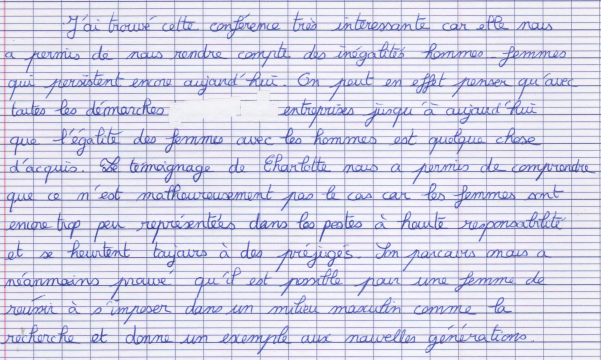 J'ai trouvé cette conférence très intéressante car elle nous
a permis de nous rendre compte des inégalités hommes femmes
qui persistent encore aujourd'hui. On peut en effet penser qu'avec
toutes les démarches entreprises jusqu'à aujourd'hui
que l'égalité des femmes avec les hommes est quelque chose
d'acquis. Le témoignage de Charlotte nous a permis de comprendre
que ce n'est malheureusement pas le cas car les femmes sont
encore trop peu représentées dans les postes à haute responsabilité
et se heurtent toujours à des préjugés. Son parcours nous a
néanmoins prouvé qu'il est possible pour une femme de
réussir à s'imposer dans un milieu masculin comme la
recherche et donne un exemple aux nouvelles générations.